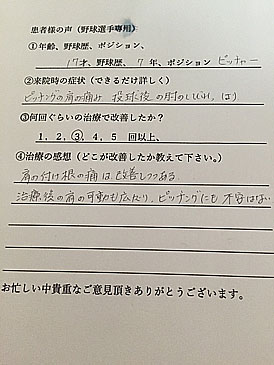 患者様の声（野球選手専用）
①年齢、野球歴、ポジション、
17才、野球歴、7年、ポジション ピッチャー
②来院時の症状（できるだけ詳しく）
ピッチングの肩の痛み 投球後の肘のしびれ、はり
③何回ぐらいの治療で改善したか？
1，2，③，4，5 回以上、
④治療の感想（どこが改善したか教えて下さい。）
肩の付け根の痛は改善しつつある
治療後の肩の可動も広がり、ピッチングにも不安はない
お忙しい中貴重なご意見頂きありがとうございます。